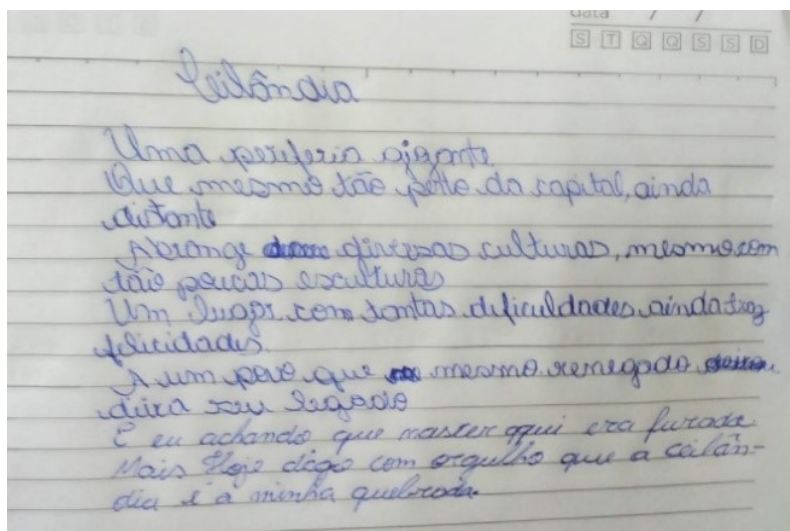 data / /
S T Q Q S S D
Ceilândia
Uma periferia gigante
Que mesmo tão perto da capital, ainda
distante
Abrange diversas culturas, mesmo com
tão poucas esculturas
Um lugar com tantas dificuldades ainda traz
felicidades
A um povo que mesmo renegado
deixa seu legado
E eu achando que nascer aqui era furada
Mais Hoje digo com orgulho que a ceilân-
dia é a minha quebrada.